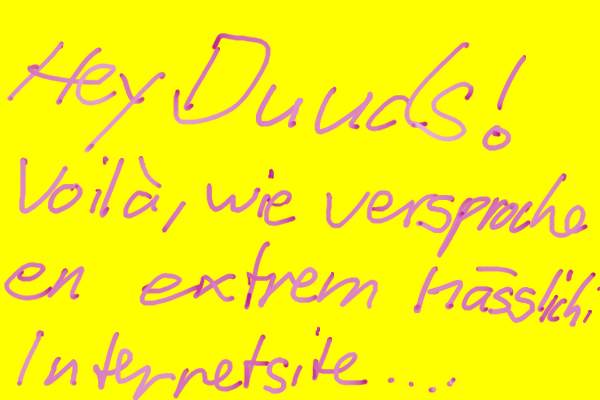 Hey Duuds!
Voilà, wie versproche
en extrem hässlichi
Internetsite....